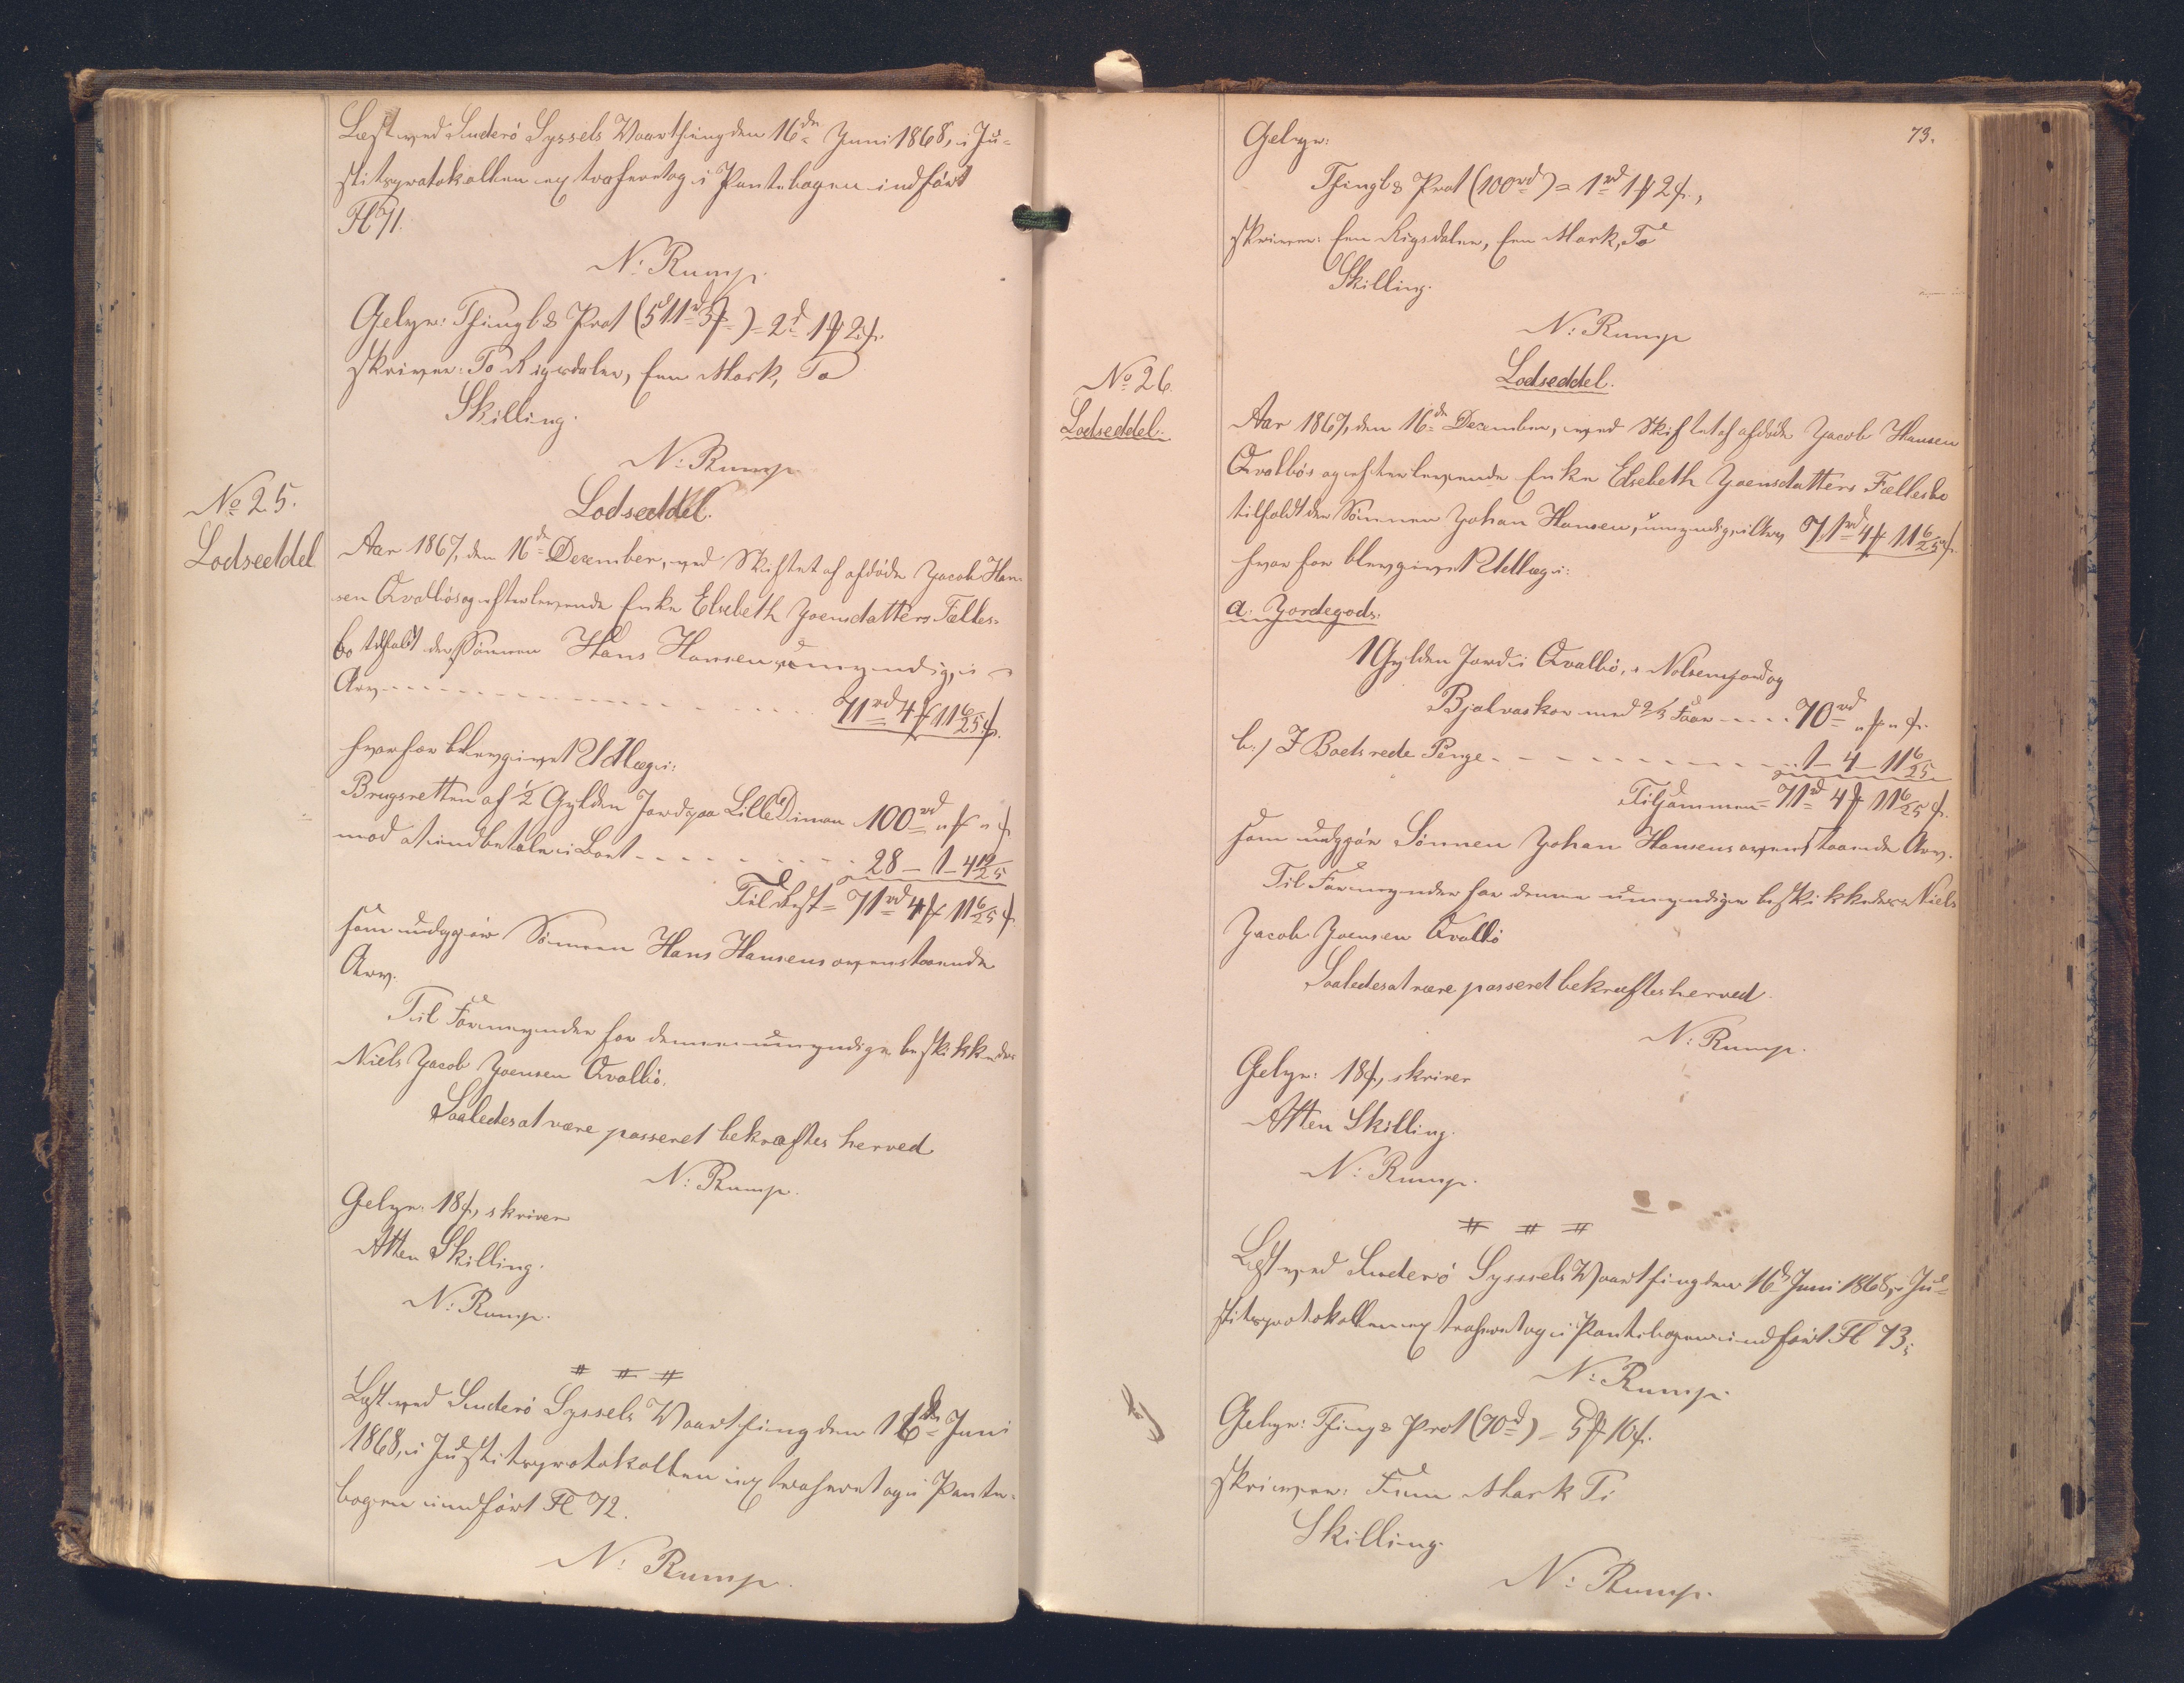 Læst ved Suderö Syssels Vaarthing den 16de Juni 1868, i Ju-
stitsprotokollen extraheret og i Pantebogen indført
Fl 71.
N: Rump.
Gebyr: Thingl & Prot (511rd 3 )= 2rd 1 2 .
skriver: To Rigsdaler, Een Mark, To
Skilling.
N: Rump
No 25.
Lodseddel
Lodseddel.
Aar 1867, den 16de December, ved Skiftet af afdöde Jacob Han-
sen Qvalbös og efterlevende Enke Elsebeth Joensdatters Fælles-
bo tilfaldt der Sönnen Hans Hansen, umyndig, i
Arv - - - 71rd 4 11 6/25 .
hvorfor blev givet Udlæg i:
Brugsretten af 1/2 Gylden Jord paa Lille Dimon 100rd " "
mod at indbetale i Boet - - - 28 - 1 - 4 19/25
Til Rest = 71rd 4 11 6/25 .
som udgjør Sönnen Hans Hansens ovenstaaende
Arv.
Til Formynder for denne umyndige beskikkedes
Niels Jacob Joensen Qvalbö.
Saaledes at være passeret bekræftes herved
N: Rump.
Gebyr: 18 , skriver
Atten Skilling.
N: Rump.
# # #
Læst ved Suderö Syssels Vaarthing den 16de Juni
1868, i Justitsprotokollen extraheret og i Pante-
bogen indført Fl 72.
N: Rump.
73.
Gebyr:
Thingl & Prot (100rd) = 1rd 1 2 ,
skriver: Een Rigsdaler, Een Mark, To
Skilling.
N: Rump
No 26.
Lodseddel.
Lodseddel.
Aar 1867, den 16de December, ved Skiftet af afdöde Jacob Hansen
Qvalbös og efterlevende Enke Elsebeth Joensdatters Fællesbo
tilfaldt der Sönnen Johan Hansen, umyndig, i Arv 71rd 4 11 6/25 .
hvorfor blev givet Udlæg i:
a. Jordegods.
1 Gylden Jord i Qvalbö, i Nolsenjord og
Bjalvaskor med 2/3 Faar - - - 70rd " " .
b.) I Boets rede Penge - - - 1 - 4 - 11 6/25
Tilsammen = 71rd 4 11 6/25 .
som udgjør Sönnen Johan Hansens ovenstaaende Arv.
Til Formynder for denne umyndige beskikkedes Niels
Jacob Joensen Qvalbö
Saaledes at være passeret bekræftes herved.
N: Rump.
Gebyr: 18 , skriver
Atten Skilling.
N: Rump.
# # #
Læst ved Suderö Syssels Vaarthing den 16de Juni 1868, i Ju-
stitsprotokollen extraheret og i Pantebogen indført Fl 73.
N: Rump.
Gebyr: Thingl & Prot (70rd) = 5 10 .
skriver: Fem Mark Ti
Skilling.
N: Rump.